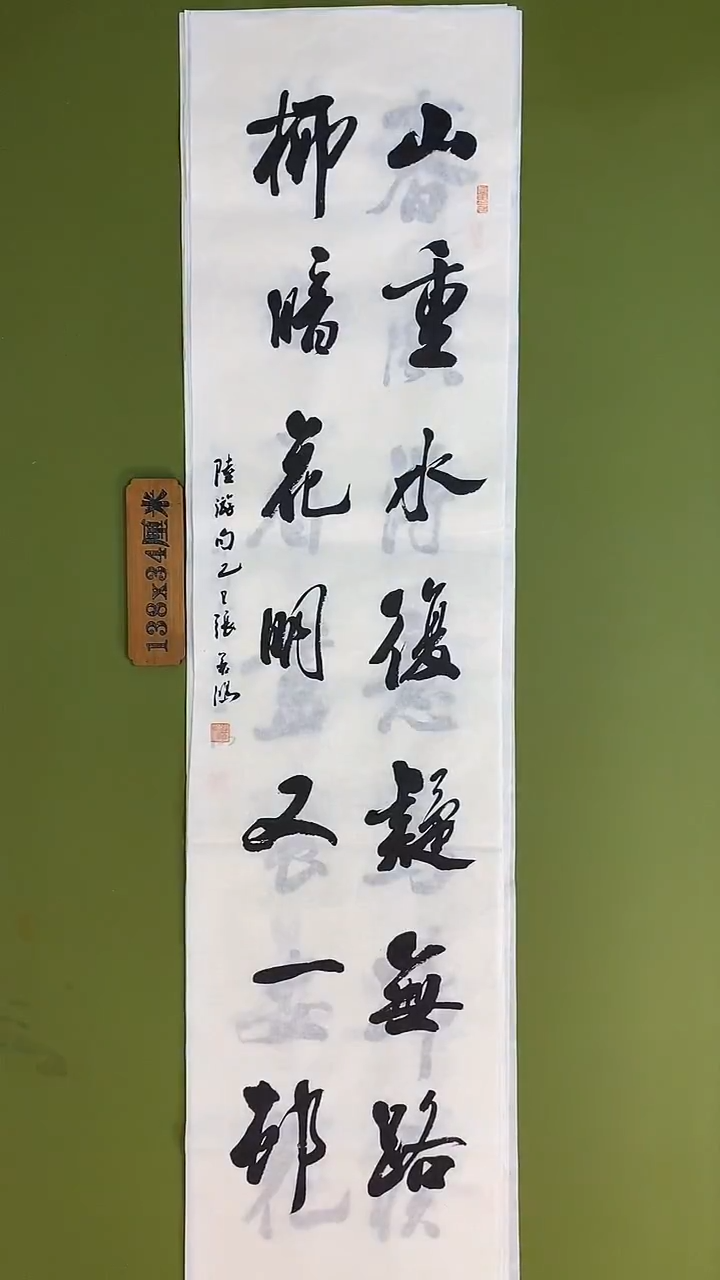 山重水復疑無路
柳暗花明又一邨
陸游句乙巳張
138x34厘米